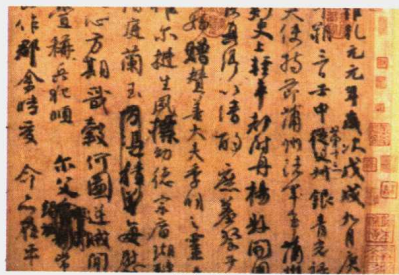 乾元元年歲次戊戌九月庚
朔三日壬申第十三叔銀青光祿
夫使持節蒲州諸軍事蒲州
刺史上輕車都尉丹楊縣開國
侯真卿以清酌庶羞祭于
姪贈贊善大夫季明之靈
惟爾挺生夙標幼德宗廟瑚
階庭蘭玉每慰
心方期戩穀何圖逆賊閒
釁稱兵犯順爾父常
山作郡余時受命在平